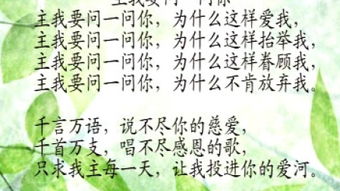 主我要问一问你
主我要问一问你，为什么这样爱我，
主我要问一问你，为什么这样抬举我，
主我要问一问你，为什么这样眷顾我，
主我要问一问你，为什么不肯放弃我。
千言万语，说不尽你的慈爱，
千首万支，唱不尽感恩的歌，
只求我主每一天，让我投进你的爱河。